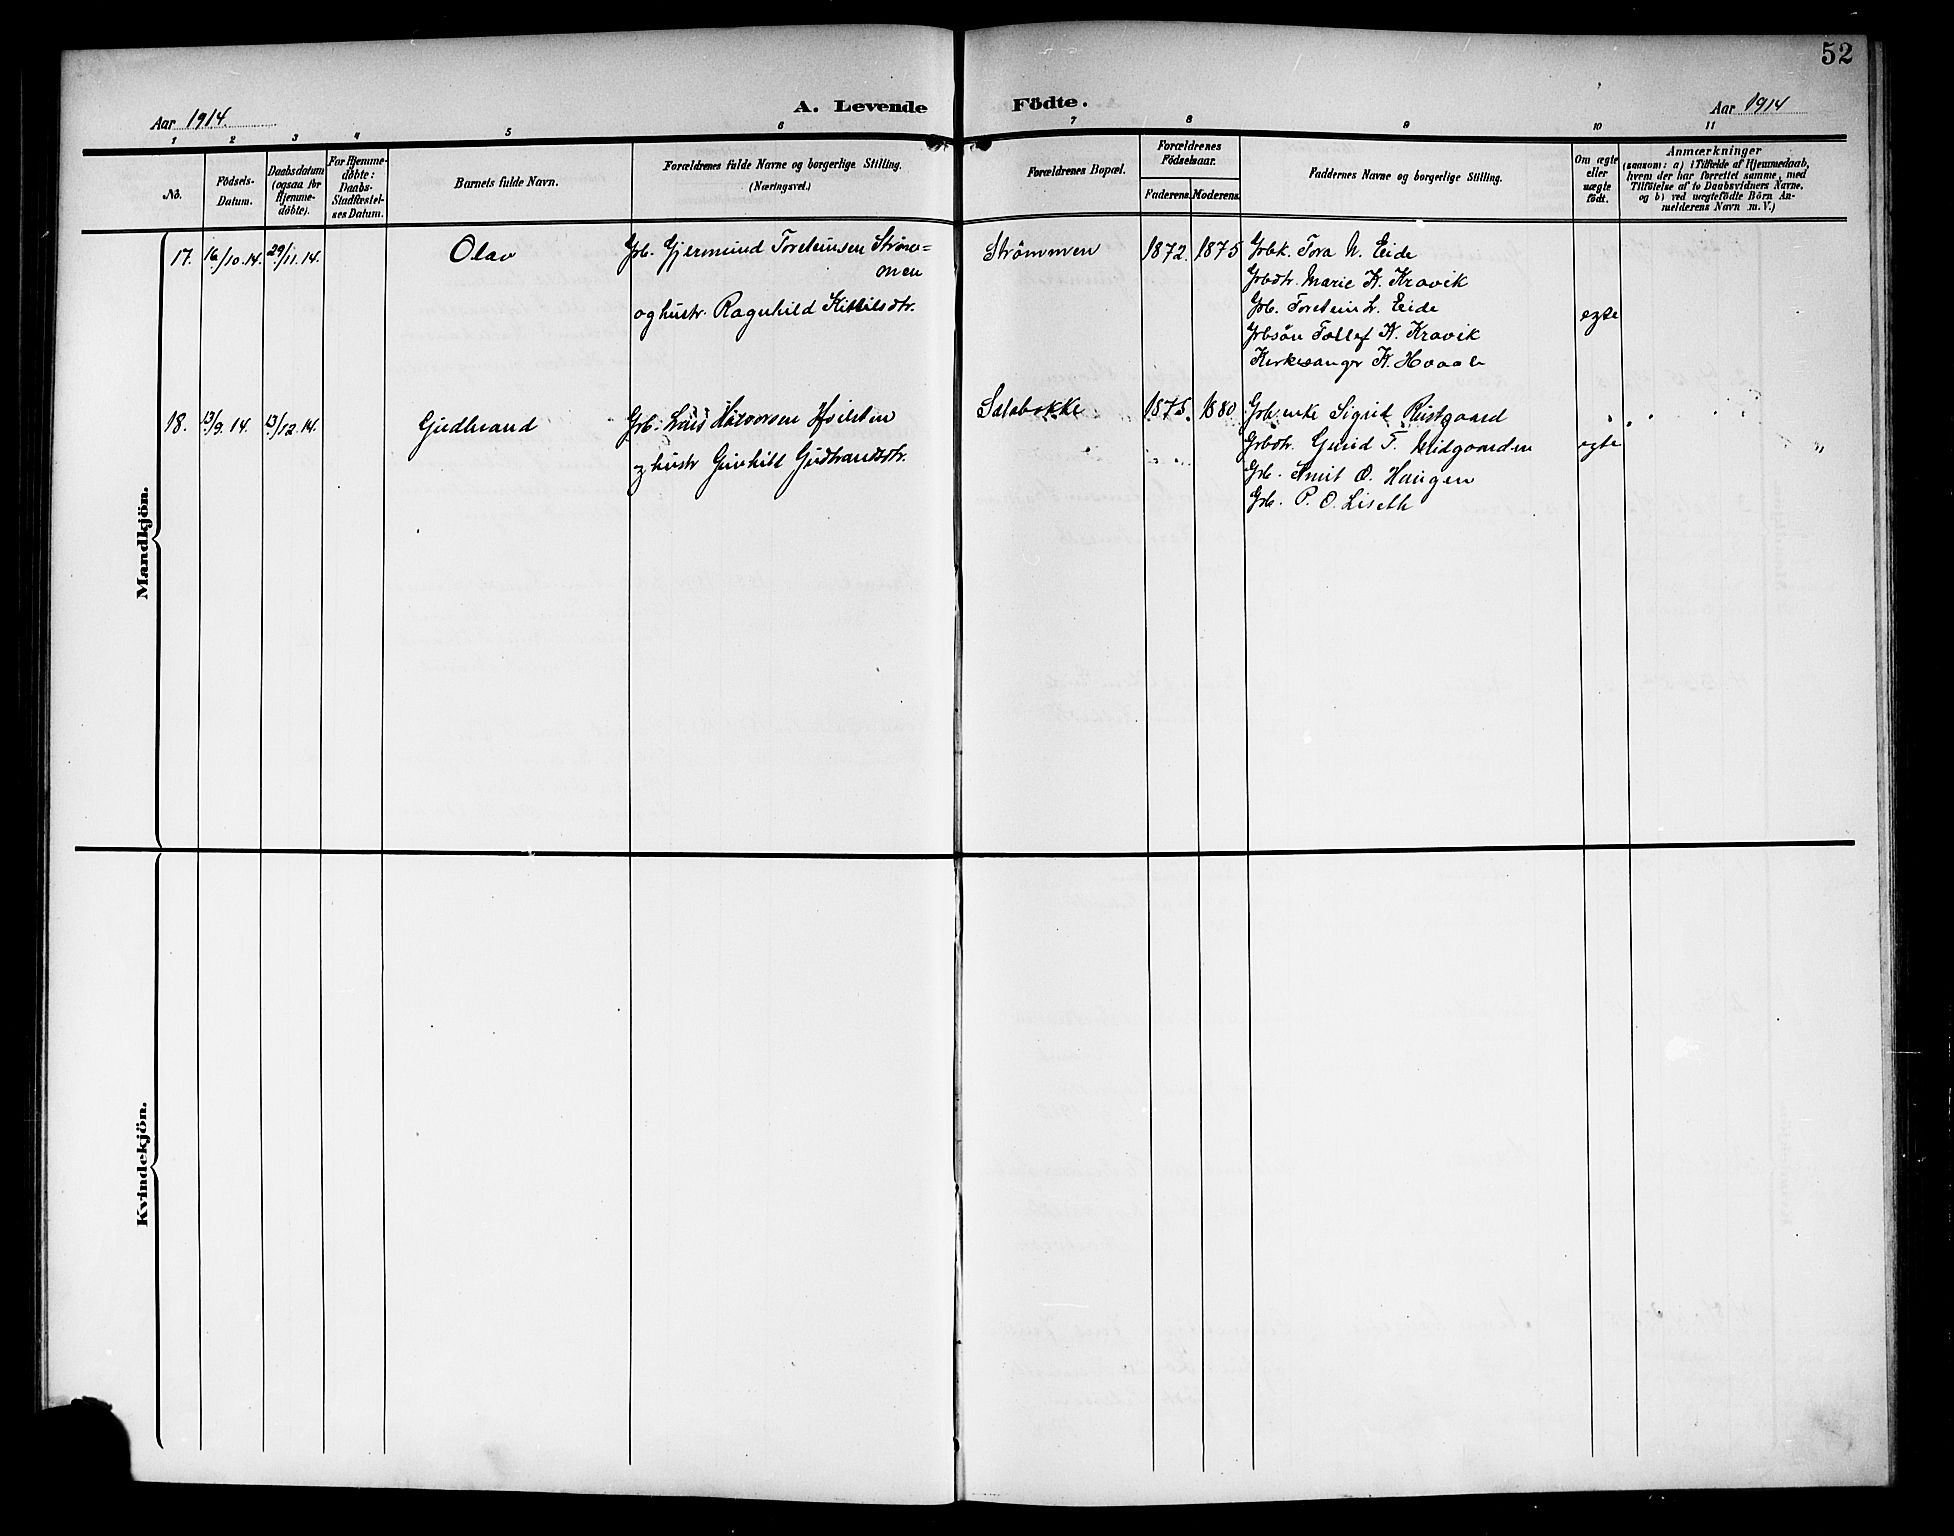 52
Aar 1914.
A. Levende Födte.
Aar 1914
1 2 3 4 5 6 7 8 9 10 11
No.
Födsels-
Datum.
Daabsdatum
(ogsaa for
Hjemme-
döbte).
For Hjemme-
döbte:
Daabs-
Stadfæstel-
ses Datum.
Barnets fulde Navn.
Forældrenes fulde Navne og borgerlige Stilling.
(Næringsvei.)
Forældrenes Bopæl.
Forældrenes
Födselsaar.
Faderens. Moderens.
Faddernes Navne og borgerlige Stilling.
Om ægte
eller
uægte
födt.
Anmærkninger
(saasom: a) i Tilfælde af Hjemmedaab,
hvem der har forrettet samme, med
Tilföielse af to Daabsvidners Navne,
og b) ved uægtefödte Börn An-
melderens Navn m. V.)
Mandkjön.
17. 16/10.14. 29/11.14.
Olav
Grb. Gjermund Torsteinsen Strøm-
men
og hustr. Ragnhild Kittilsdtr.
Strømmen
1872. 1875
Grbk. Tora N. Eide
Grbdtr. Marie K. Kravik
Grb. Torstein L. Eide
Grbsøn Tollef K. Kravik
Kirkesanger K. Hvaale
egte
18. 13/9.14. 13/12.14.
Gudbrand
Grb. Lars Halvorsen
og hustr Gunhild Gudbrandsdtr.
1875. 1880.
Grb.enke Sigrid Rustgaard
Grbdtr. Gunid T. Midgaarden
Grb. Knut O. Haugen
Grb. P. O. Liseth
egte
"
Kvindekjön.